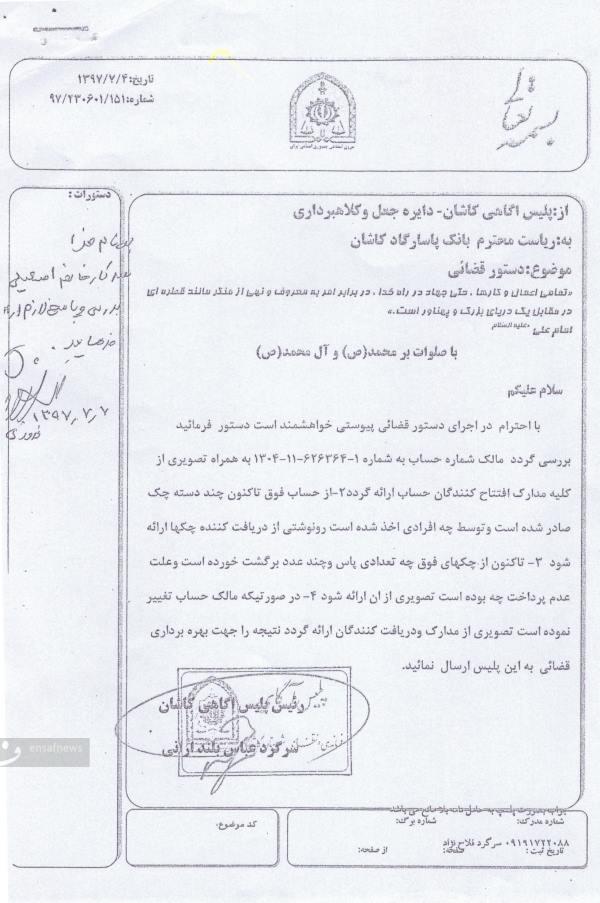 بسمه تعالی
نیروی انتظامی جمهوری اسلامی ایران
تاریخ:۱۳۹۷/۷/۴
شماره:۹۷/۲۳۰۶۰۱/۱۵۱
از:پلیس آگاهی کاشان- دایره جعل وکلاهبرداری
به:ریاست محترم بانک پاسارگاد کاشان
موضوع:دستور قضائی
«تمامی اعمال و کارها ، حتی جهاد در راه خدا ، در برابر امر به معروف و نهی از منکر مانند قطره ای
در مقابل یک دریای بزرگ و پهناور است.»
امام علی علیه السلام
با صلوات بر محمد(ص) و آل محمد(ص)
سلام علیکم
با احترام در اجرای دستور قضائی پیوستی خواهشمند است دستور فرمائید
بررسی گردد مالک شماره حساب به شماره ۱-۶۲۶۳۶۴-۱۱-۱۳۰۴ به همراه تصویری از
کلیه مدارک افتتاح کنندگان حساب ارائه گردد۲-از حساب فوق تاکنون چند دسته چک
صادر شده است وتوسط چه افرادی اخذ شده است رونوشتی از دریافت کننده چکها ارائه
شود ۳- تاکنون از چکهای فوق چه تعدادی پاس وچند عدد برگشت خورده است وعلت
عدم پرداخت چه بوده است تصویری از ان ارائه شود ۴- در صورتیکه مالک حساب تغییر
نموده است تصویری از مدارک ودریافت کنندگان ارائه گردد نتیجه را جهت بهره برداری
قضائی به این پلیس ارسال نمائید.
رئیس پلیس آگاهی کاشان
سرگرد عباس بلند آرانی
دستورات:
بررسی و پاسخ لازم ارائه
۱۳۹۷,۷,۷
ensafnews
جواب بصورت پلمپ به حامل نامه بلامانع می باشد
شماره مدرک: شماره برگ:
۰۹۱۹۱۷۲۲۰۸۸ سرگرد فلاح نژاد
تاریخ ثبت : صفحه: از صفحه:
کد موضوع: